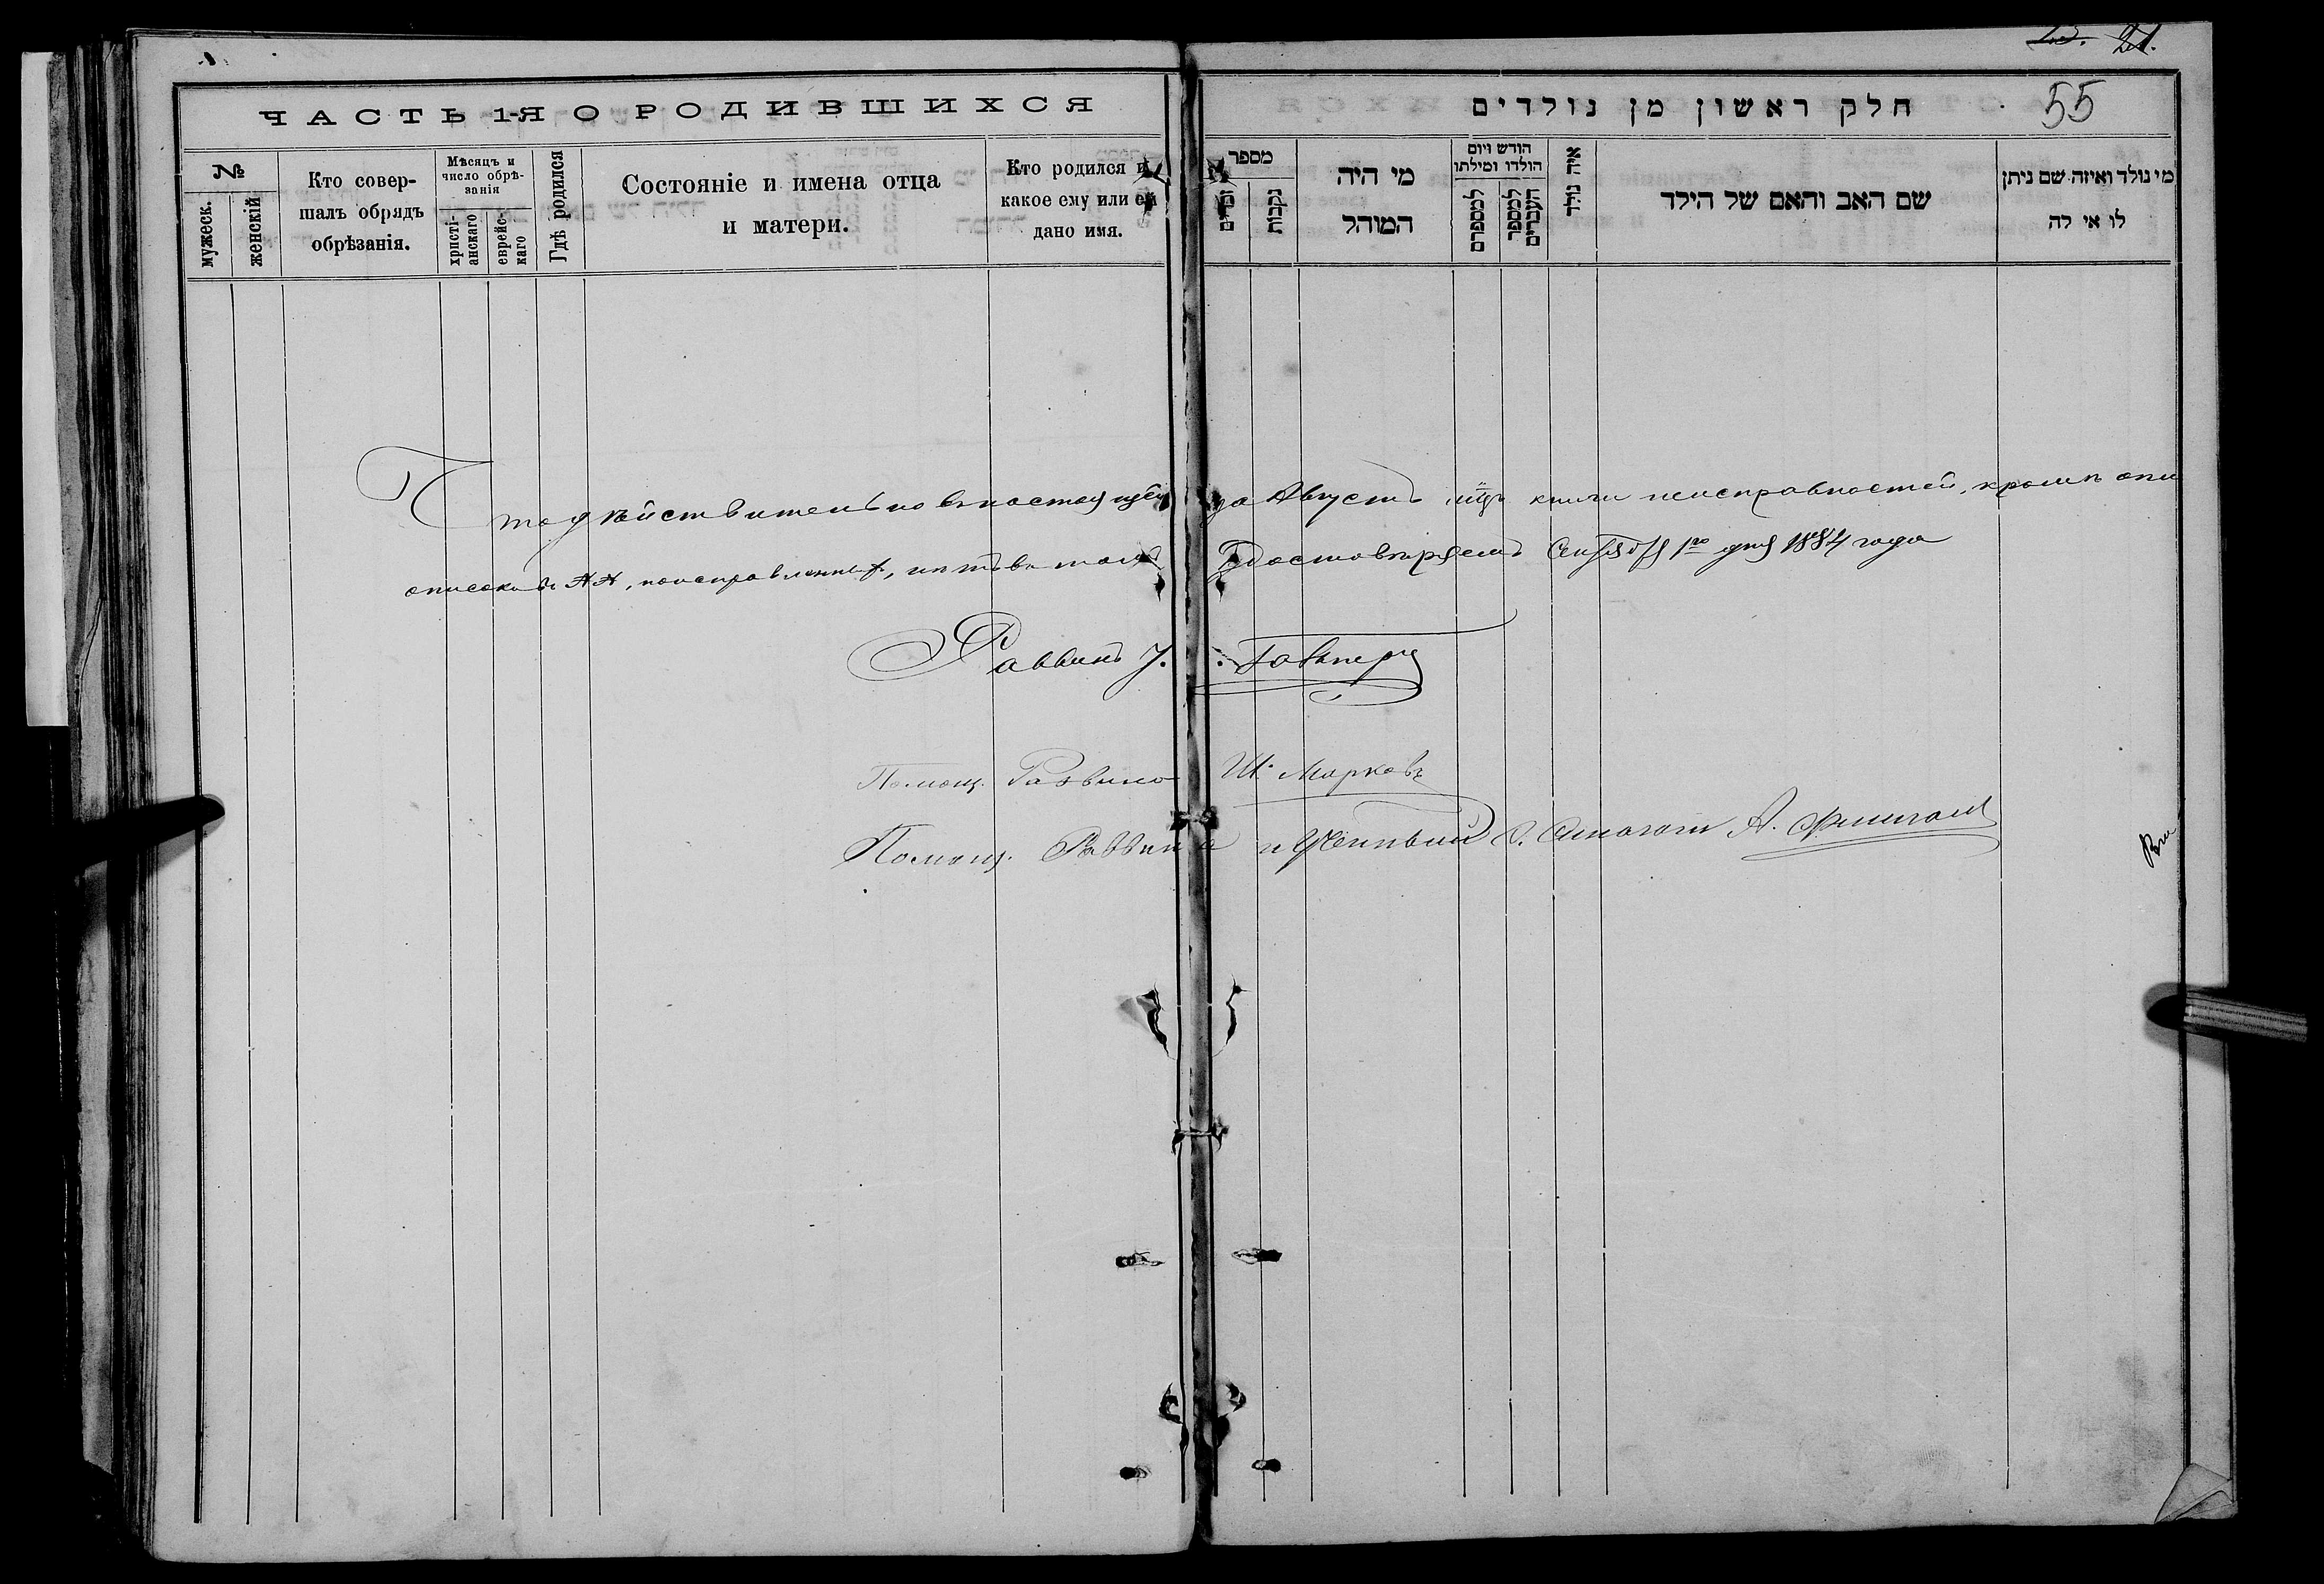 23. 21.
ЧАСТЬ 1-Я О РОДИВШИХСЯ
№
мужеск.
женскій
Кто совер-
шалъ обрядъ
обрѣзанія.
Мѣсяцъ и
число обрѣ-
занія
христі-
анскаго
еврейс-
каго
Гдѣ родился
Состояніе и имена отца
и матери.
Кто родился и
какое ему или ей
дано имя.
חלק ראשון מן נולדים
55
מספר
זכרים
נקבות
מי היה
המוהל
הודש ויום
הולדו ומילתו
למספרם
למספר
העברים
איה נולד
שם האב והאם של הילד
מי נולד ואיזה שם ניתן
לו אי לה
Что дѣйствительно въ настоящей за Августъ мцъ книги неисправностей, кромѣ
удостовѣряемъ 1го дня 1884 года
Раввинъ
Помощ. Раввина Ш. Марковъ
Помощ. Раввина и Ученный А.